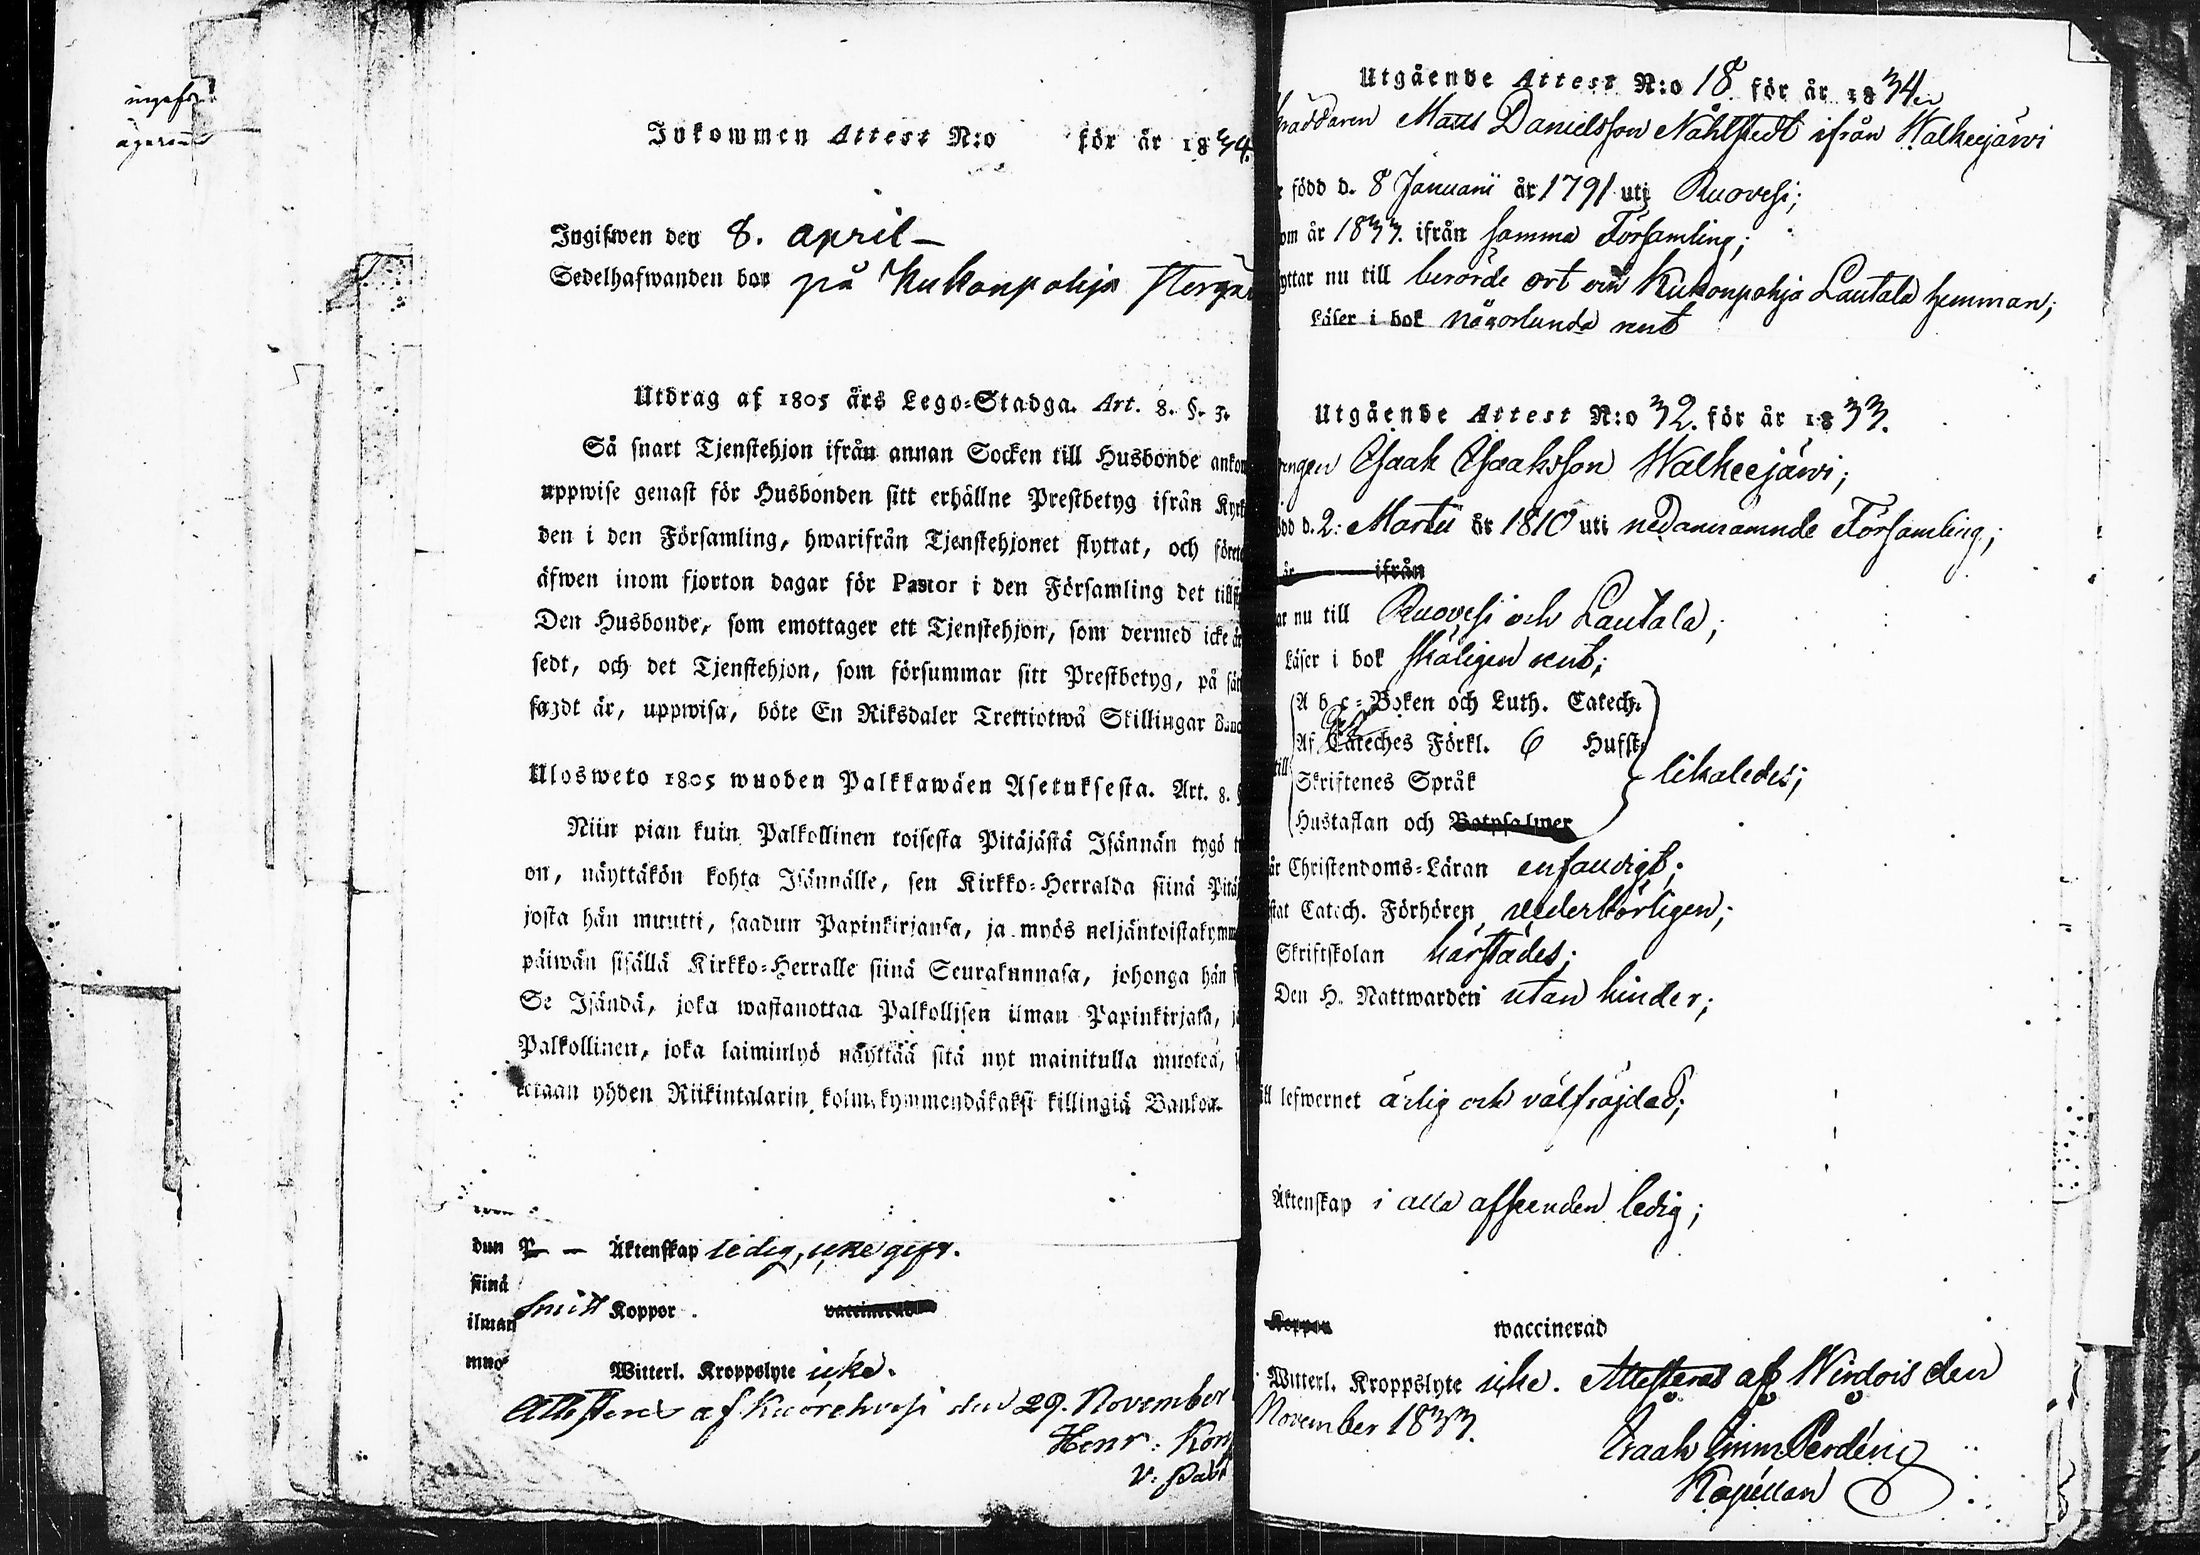 Inkommen Attest N:o för år 1834.
Ingifwen den 8. april
Sedelhafwanden bor på Kukonpohja
Utdrag af 1805 års Lego-Stadga. Art. 8. §. 3.
Så snart Tjenstehjon ifrån annan Socken till Husbonde
uppwise genast för Husbonden sitt erhållne Prestbetyg ifrån
den i den Församling, hwarifrån Tjenstehjonet flyttat, och
äfwen inom fjorton dagar för Pastor i den Församling det
Den Husbonde, som emottager ett Tjenstehjon, som dermed icke
sedt, och det Tjenstehjon, som försummar sitt Prestbetyg, på
sagdt är, uppwisa, böte En Riksdaler Trettiotwå Skillingar
Ulosweto 1805 wuoden Palkkawäen Asetuksesta. Art. 8.
Niin pian kuin Palkollinen toisesta Pitäjästä Isännän tygö
on, näyttäkön kohta Isännälle, sen Kirkko-Herralda siinä
josta hän muutti, saadun Papinkirjansa, ja myös
päiwän sisällä Kirkko-Herralle siinä Seurakunnasa, johonga hän
Se Isändä, joka wastanottaa Palkollisen ilman Papinkirjata,
Palkollinen, joka laiminlyö näyttää sitä nyt mainitulla muotoa,
yhden Riikintalarin kolmekymmendäkaksi killingiä Bankoa.
dun Äktenskap ledig, icke gift.
siinä
ilman Koppor. vaccinerad
muo
Witterl. Kroppslyte icke.
Attesteras af Kuorehvesi den 29. November
Henr:
V: Past
Utgående Attest N:o 18 för år 1834
Danielsson Nahlstedt ifrån Walkeejärwi
född d. 8 Januarii år 1791 uti Ruovesi;
om år 1833. ifrån samma Församling;
yttar nu till berörde ort och Kukonpohja Lautala hemman;
Läser i bok någorlunda rent
Utgående Attest N:o 32. för år 1833.
Isaak Isaaksson Walkeejärwi;
d. 2: Martii år 1810 uti nedannämnde Församling;
år ifrån
ar nu till Ruovesi och Lautala;
Läser i bok skäligen rent;
A b c-Boken och Luth. Catech.
Af Cateches Förkl. 6 Hufst.
Skriftenes Språk
likaledes;
Hustaflan och Botpsalmer
år Christendoms-Läran enfaldigt;
stat Catech. Förhören vederbörligen;
Skriftskolan härstädes;
Den H. Nattwarden utan hinder;
till lefwernet ärlig och välfräjdad;
Äktenskap i alla afseenden ledig;
Koppor waccinerad
Witterl. Kroppslyte icke. Attesteras af Wirdois den
November 1833.
Isaak Imm.
Kapellan